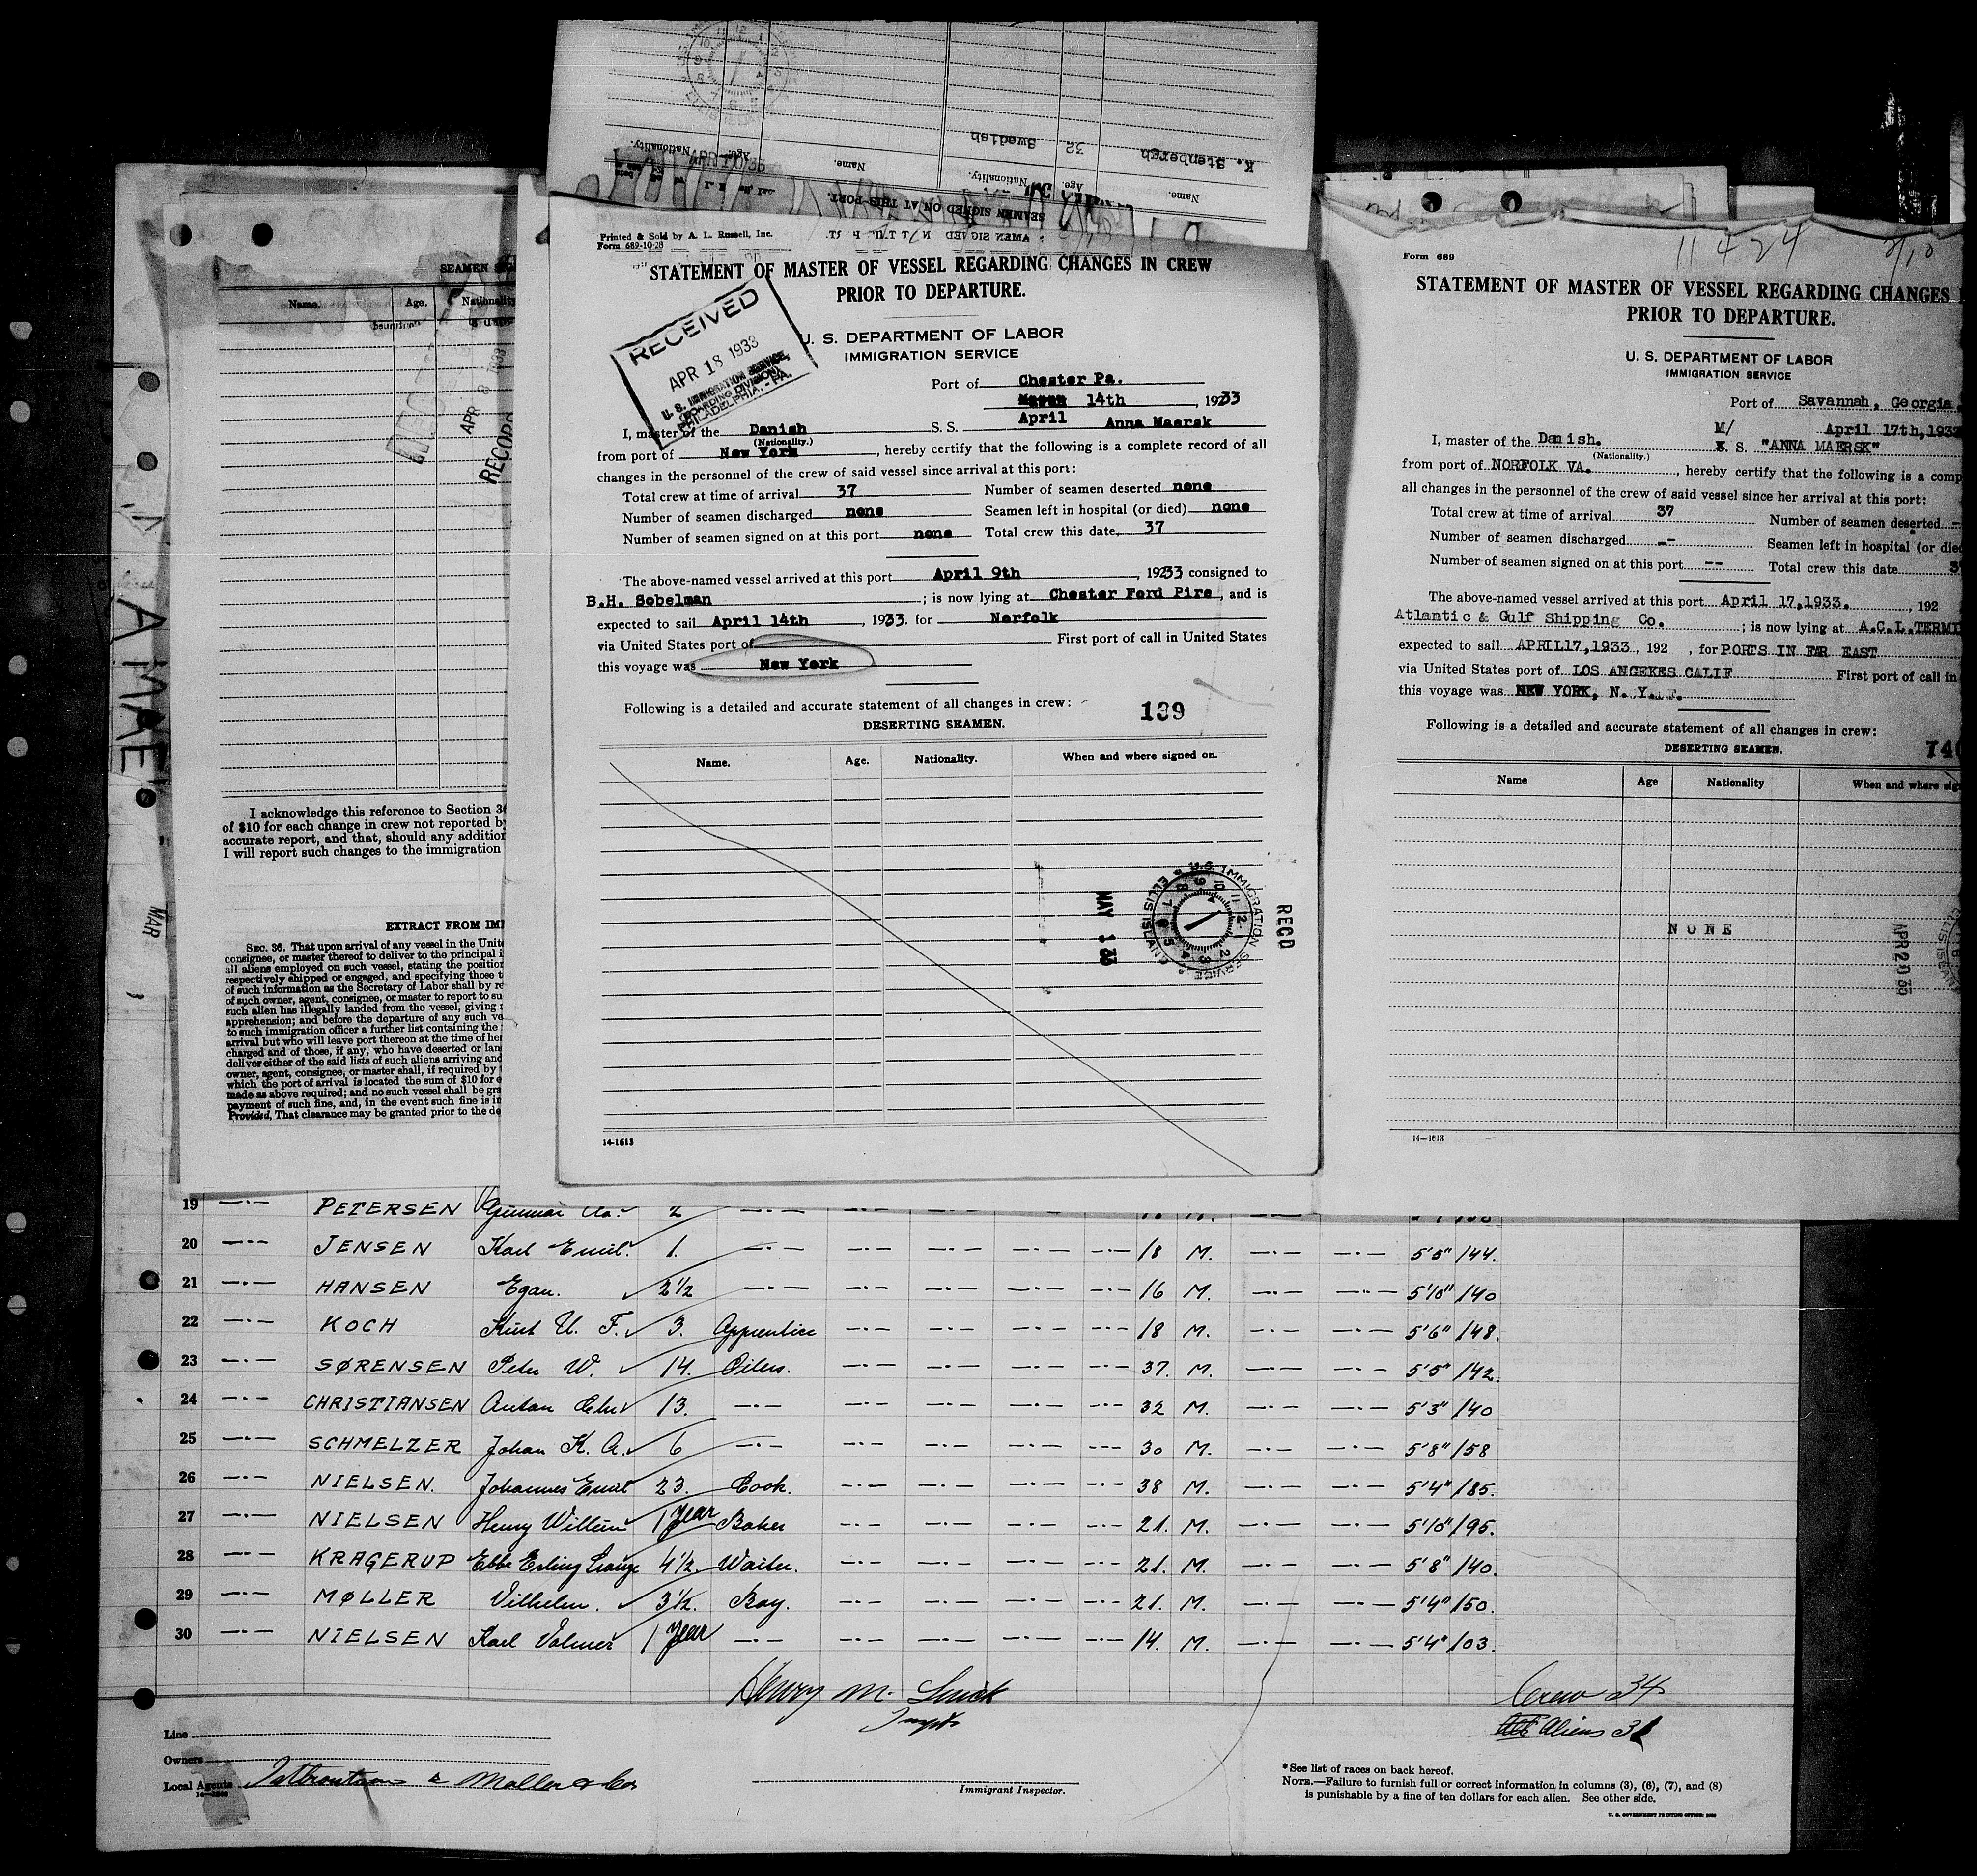 K. Stenbergh 32 Swedish
Name. Age. Nationality. Name. Age. Nationality.
APR 10 33
SEAMEN SIGNED ON AT THIS PORT.
Printed & Sold by A. L. Russell, Inc.
Form 689-10-28
STATEMENT OF MASTER OF VESSEL REGARDING CHANGES IN CREW
PRIOR TO DEPARTURE.
RECEIVED
APR 18 1933
U. S. IMMIGRATION SERVICE,
(BOARDING DIVISION)
PHILADELPHIA. - PA.
U. S. DEPARTMENT OF LABOR
IMMIGRATION SERVICE
Port of Chester Pa.
14th, 19233
April
I, master of the Danish S. S. Anna Maersk
(Nationality.)
from port of New York, hereby certify that the following is a complete record of all
changes in the personnel of the crew of said vessel since arrival at this port:
Total crew at time of arrival 37 Number of seamen deserted none
Number of seamen discharged none Seamen left in hospital (or died) none
Number of seamen signed on at this port none Total crew this date, 37
The above-named vessel arrived at this port April 9th, 19233 consigned to
B.H. Sobelman; is now lying at Chester Ford Pire, and is
expected to sail April 14th, 1933. for Norfolk
via United States port of First port of call in United States
this voyage was New York
Following is a detailed and accurate statement of all changes in crew:
139
DESERTING SEAMEN.
Name. Age. Nationality. When and where signed on.
MAY 1 33
U.S. IMMIGRATION SERVICE ELLIS ISLAND
RECD
14-1613
11424
Form 689
STATEMENT OF MASTER OF VESSEL REGARDING CHANGES
PRIOR TO DEPARTURE.
U. S. DEPARTMENT OF LABOR
IMMIGRATION SERVICE
Port of Savannah, Georgia,
M/ April 17th, 1933
I, master of the Danish. S. S. "ANNA MAERSK"
(Nationality.)
from port of NORFOLK VA., hereby certify that the following is a comp
all changes in the personnel of the crew of said vessel since her arrival at this port:
Total crew at time of arrival 37 Number of seamen deserted
Number of seamen discharged -- Seamen left in hospital (or died
Number of seamen signed on at this port -- Total crew this date 3
The above-named vessel arrived at this port April 17,1933., 192
Atlantic & Gulf Shipping Co.; is now lying at A.C.L.TERMI
expected to sail APRIL17,1933, 192 , for PORTS IN FAR EAST
via United States port of LOS ANGEKES CALIF First port of call in
this voyage was NEW YORK, N. Y.
Following is a detailed and accurate statement of all changes in crew:
DESERTING SEAMEN.
740
Name Age Nationality When and where sig
NONE
APR 20 33
14-1613
SEAMEN SIG
Name. Age. Nationality
APR 8 1933
RECORD
I acknowledge this reference to Section 36
of $10 for each change in crew not reported by
accurate report, and that, should any addition
I will report such changes to the immigration
EXTRACT FROM IMM
SEC. 36. That upon arrival of any vessel in the Unite
consignee, or master thereof to deliver to the principal i
all aliens employed on such vessel, stating the position
respectively shipped or engaged, and specifying those t
of such information as the Secretary of Labor shall by re
of such owner, agent, consignee, or master to report to su
such alien has illegally landed from the vessel, giving a
apprehension; and before the departure of any such ve
to such immigration officer a further list containing the
arrival but who will leave port thereon at the time of her
charged and of those, if any, who have deserted or lan
deliver either of the said lists of such aliens arriving and
owner, agent, consignee, or master shall, if required by
which the port of arrival is located the sum of $10 for e
made as above required; and no such vessel shall be gra
payment of such fine, and, in the event such fine is in
Provided, That clearance may be granted prior to the de
MAR
19 —·— PETERSEN Gunnar 2 —·— —·— —·— —·— —·—
20 —·— JENSEN Karl Emil. 1. —·— —·— —·— —·— —·— 18 M. —·— —·— 5'5" 144.
21 —·— HANSEN Egan. 2 1/2 —·— —·— —·— —·— —·— 16 M. —·— —·— 5'10" 140
22 —·— KOCH Kurt U. F. 3. Apprentice —·— —·— —·— —·— 18 M. —·— —·— 5'6" 148.
23 —·— SØRENSEN Peter W. 14. Oilers. —·— —·— —·— —·— 37. M. —·— —·— 5'5" 142.
24 —·— CHRISTIANSEN Anton 13. —·— —·— —·— —·— —·— 32 M. —·— —·— 5'3" 140
25 —·— SCHMELZER Johan K. A. 6 —·— —·— —·— —·— —·— 30 M. —·— —·— 5'8" 158
26 —·— NIELSEN. Johannes Emil 23. Cook. —·— —·— —·— —·— 38 M. —·— —·— 5'4" 185.
27 —·— NIELSEN Henry Willum 1 year Baker —·— —·— —·— —·— 21. M. —·— —·— 5'10" 195.
28 —·— KRAGERUP Ebbe Erling Lange 4 1/2. Waiter. —·— —·— —·— —·— 21. M. —·— —·— 5'8" 140.
29 —·— MØLLER Vilhelm. 3 1/2. Boy. —·— —·— —·— —·— 21. M. —·— —·— 5'4" 150.
30 —·— NIELSEN Karl Volmer 1 year —·— —·— —·— —·— —·— 14. M. —·— —·— 5'4" 103.
Henry M.
Crew 34
Aliens 31
Line
Owners
Local Agents Moller & Co
Immigrant Inspector.
*See list of races on back hereof.
NOTE.—Failure to furnish full or correct information in columns (3), (6), (7), and (8)
is punishable by a fine of ten dollars for each alien. See other side.